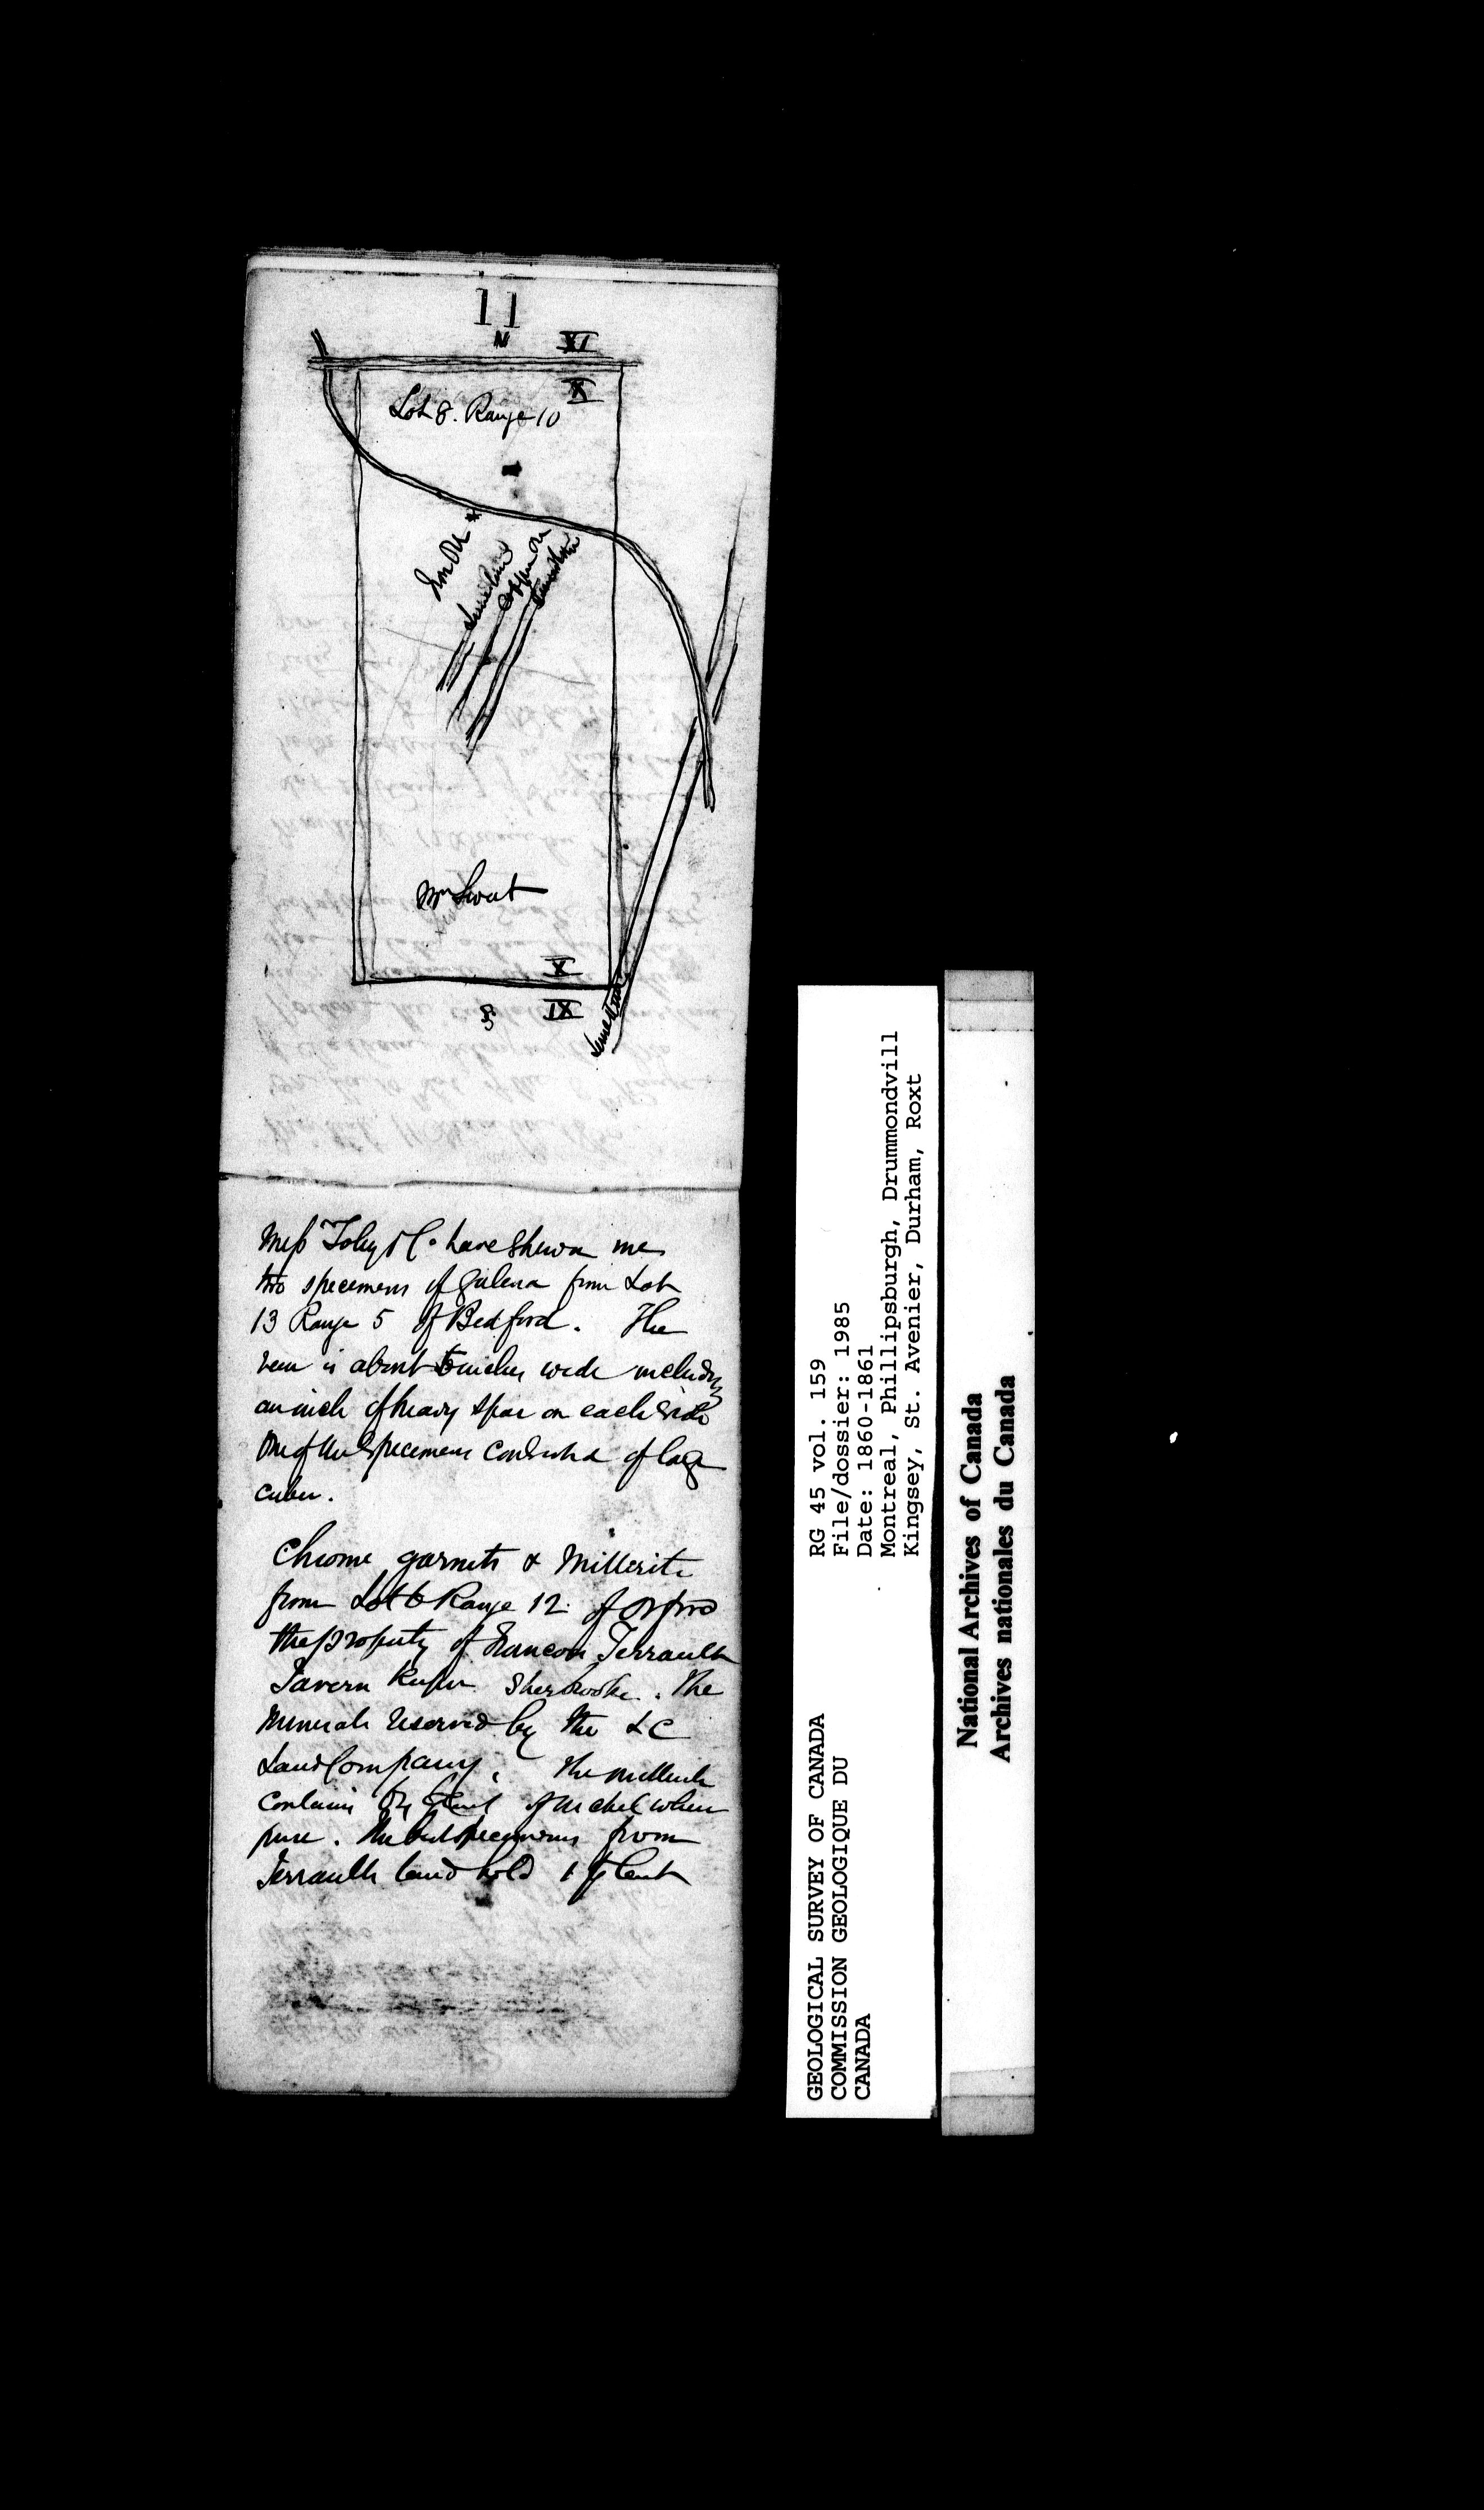 11
N
XI
X
Lot 8. Range 10
Iron Ore *
Limestone
Copper Ore
Limestone
Mr Sweet
X
IX
S
Limestone
Mess Foley & Co have shewn me
two specimens of galena from Lot
13 Range 5 of Bedford. The
vein is about 5 inches wide including
an inch of heavy spar on each side
One of the specimens consisted of large
cubes.
Chrome garnets & Millerite
from Lot 6 Range 12 of Orford
the property of Francois Terrault
Tavern Keeper Sherbrooke. The
Minerals reserved by the L C
Land Company. The millerite
contains cent of nickel when
pure. The best specimens from
Terraults land hold 1 cent
RG 45 vol. 159
File/dossier: 1985
Date: 1860-1861
Montreal, Phillipsburgh, Drummondvill
Kingsey, St. Avenier, Durham, Roxt
GEOLOGICAL SURVEY OF CANADA
COMMISSION GEOLOGIQUE DU
CANADA
National Archives of Canada
Archives nationales du Canada